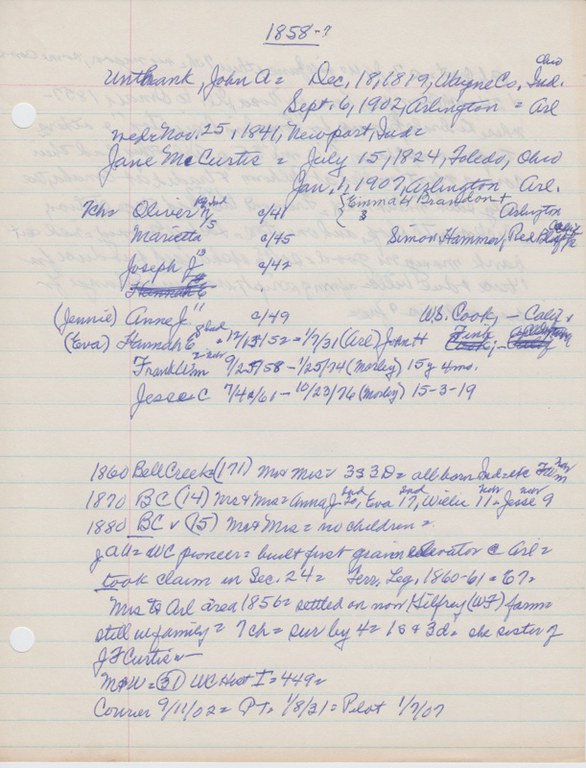 1858-?
Unthank, John A = Dec, 18, 1819, Wayne Co, Ind.
Ohio
Sept. 6, 1902, Arlington = Arl
wed = Nov, 25, 1841, Newport, Ind =
Jane McCurtis = July 15, 1824, Toledo, Ohio
Jan, 1, 1907, Arlington - Arl.
Chr Oliver c/41 Emma H Brandon + Arlington
3
Marietta c/45 Simon Hammer, Red Bluff Calif
Joseph J c/42
Hannah E
(Jennie) Anne J" c/49 W.S. Cook, - Calif
(Eva) Hannah E = 12/15/52 - 1/7/31 (Arl) John H Fink
Frank Wm 9/25/58 - 1/25/74 (Morley) 15 y 4 mo.
Jesse C 7/4/61 - 10/23/76 (Morley) 15-3-19
1860 Bell Creek = (171) Mr & Mrs = 3 s 3 D = all born Ind = ex Wm
1870 BC (14) Mr & Mrs = Anna J Eva 17, Willie 11 = Jesse 9
1880 BC (15) Mr & Mrs = no children =
J all = WC pioneer = built first grain elevator @ Arl =
took claim in Sec. 24 = Terr, Leg, 1860-61 = 67 =
Mrs to Arl area 1856 = settled on now Gilfrey (WF) farm =
still in family = 7 ch = sur by 4 = 1 s & 3 d = she sister of
J F Curtis =
M & W = (51) WC Hist I = 449 =
Courier 9/11/02 = PT = 1/8/31 = Pilot 1/7/07